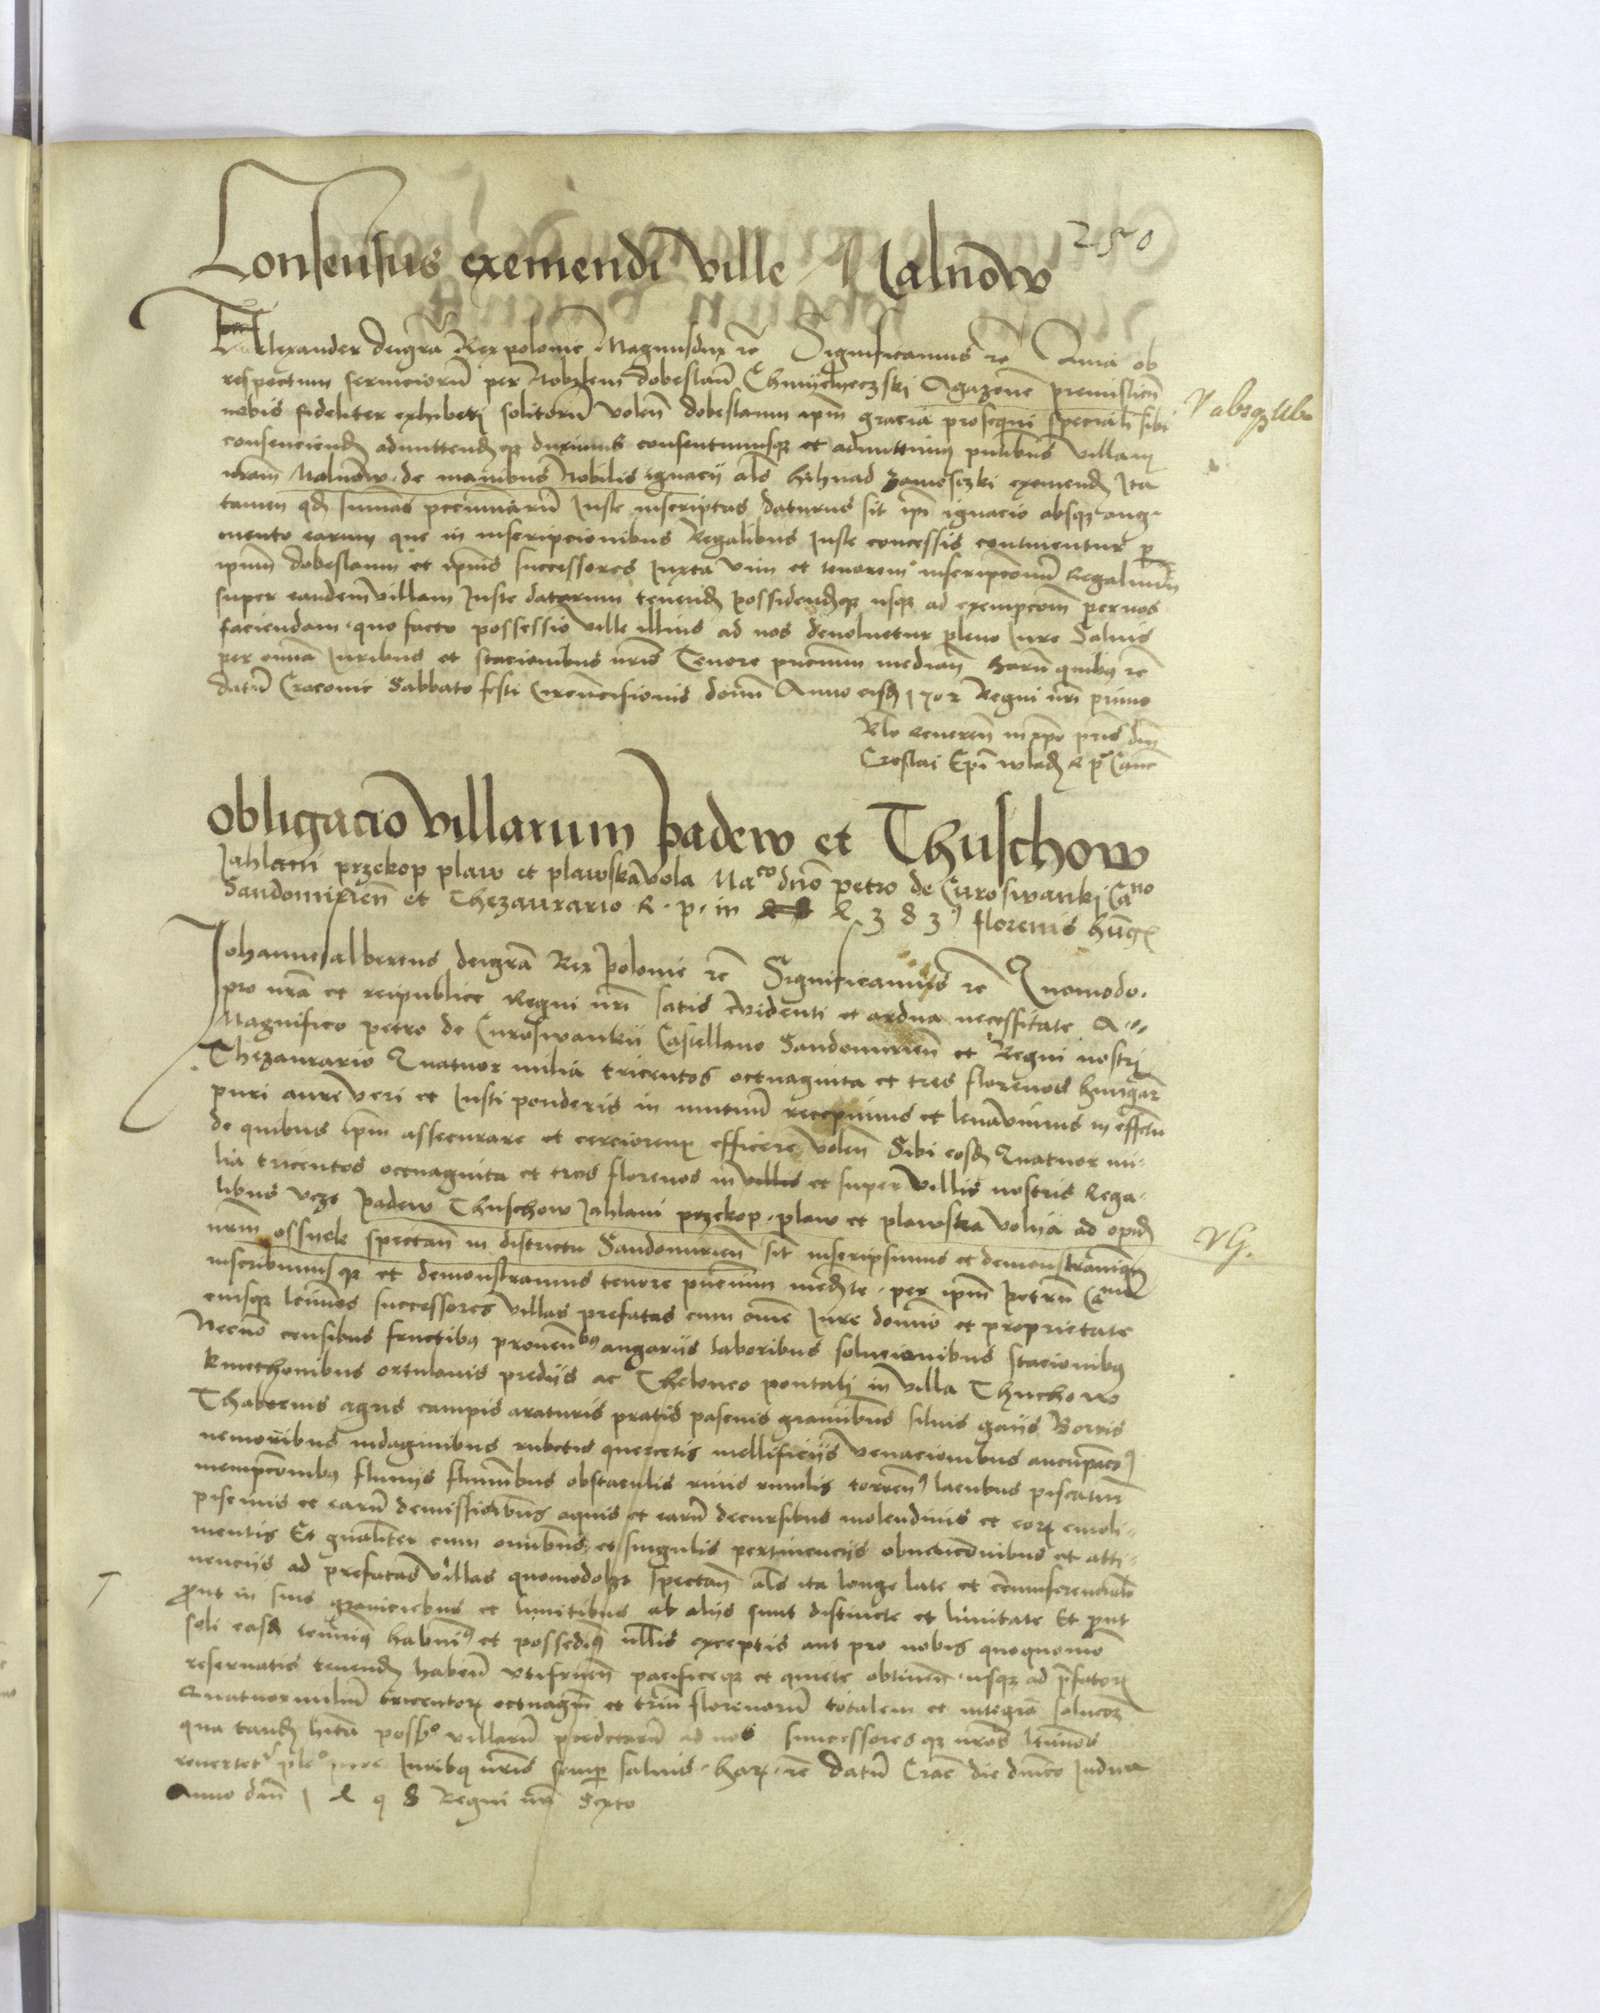 250
Consensus exemendi ville Malnow
Alexander dei gra Rex polonie Magnusdux rc Significamus rc Quia ob
respectum serviciorū per Nobilem dobeslaū Chmyelyeczski Agazonē premislień
nobis fideliter exhiberi solitorū volen dobeslaum ipm gracia prosequi speciali sibi
consenciend admittendqz duximus consentimusqz et admittimus pntibus villam
nram Malnow de manibus Nobilis ignacii als hihnad exemend Ita
tamen qd summas pecuniarū Iuste inscriptas daturus sit ipi ignacio absqz aug-
mento earum que in inscripcionibus Regalibus Iuste concessis continentur per
ipum dobeslaum et ipius successores Iuxta vim et tenorem inscripconum Regalium
super eandem villam Iuste datarum tenend possidendqz usqz ad exempcom per nos
faciendam quo facto possessio ville illius ad nos devoluetur pleno Iure Salvis
per omnia Iuribus et stacionibus nris Tenore pncium median harū quibus rc
datū Cracovie Sabbato festi Circūcisionis domini Anno eiusd 1502 Regni nri primo
Rlo Reveren in xpo pris dni
Creslai Epi wlad R p Canc
obligacio villarum padew et Thuschow
Jahlani przekop plaw et plawska vola Maco dno petro de Curoswanki Cano
Sandomirien et Thezaurario R. p. in 4383 florenis hung
Johannes albertus dei gra Rex polonie rc Significamus rc Quomodo
pro nra et reipublice Regni nri satis evidenti et ardua necessitate A
Magnifico petro de Curoswankii Castellano Sandomirien et Regni nostri
Thezaurario Quatuor milia tricentos octuaginta et tres florenos hungar
puri auri veri et Iusti ponderis in mutuū recepimus et levavimus in effectu
de quibus ipm assecurare et cerciorem efficere volen Sibi eosd Quatuor mi-
lia tricentos octuaginta et tres florenos in villis et super villis nostris Rega-
libus vczs padew Thuschow Jahlani przekop plaw et plawska volya ad opid
nrm ossyek spectan in districtu Sandomirien sit inscripsimus et demonstravimus
inscribimusqz et demonstramus tenore pncium mediante per ipm petrū Canu
eiusqz leitimos successores villas prefatas cum omni Iure dominio et proprietate
Necno censibus fructibus provenbus angariis laboribus solucionibus stacionibus
kmethonibus ortulanis prediis ac Theloneo pontali in villa Thuchow
Thabernis agris campis araturis pratis pascuis graminibus silvis gaiis Borris
nemoribus indaginibus rubetis quercetis mellificiis venacionibus aucupaco
flumiis fluminibus obstaculis rivis rivulis torrens lacubus piscaturis
piscinis et earū demissionibus aquis et earū decursibus molendinis et eorum emoli-
mentis Et gnaliter cum omnibus et singulis pertinenciis obvenconibus et atti-
nenciis ad prefatas villas quomodolibet spectan als ita longe late et circumferencialr
prout in suis graniciebus et limitibus ab aliis sunt distincte et limitate Et prout
soli easd tenuimus habuimus et possedimus nullis exceptis aut pro nobis quoquomo
reservatis tenend habend utifruend pacificeqz et quiete obtinend usqz ad prefatorum
Quatuormilium tricentorum octuaginta et trium florenorū totalem et integram solucom
qua tand habita posso villarū predictarū ad nos successoresqz nros leitimos
revertetr pleo iure Iuribus nris semper salvis harum rc datū Crac die dnico Iudica
Anno dni 1498 Regni nri Sexto